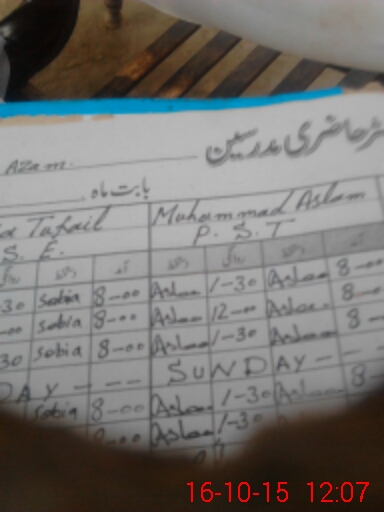 ٹر حاضری مدرسین
Azam.
بابت ماہ
Tufail Muhammad Aslam
S. E. P. S. T
دستخط آمد دستخط روانگی دستخط آمد
30 Sobia 8-00 Aslam 1-30 Aslam 8-00
00 Sobia 8-00 Aslam 12-00 Aslam 8-00
30 Sobia 8-00 Aslam 1-30 Aslam 8-
DAY - - - - SUNDAY - - -
Sobia 8-00 Aslam 1-30 Aslam 8-
8-00 Aslam 1-30
16-10-15 12:07